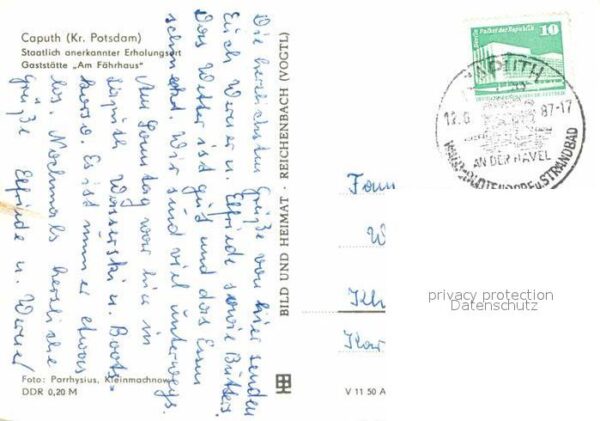 Caputh (Kr. Potsdam)
Staatlich anerkannter Erholungsort
Gaststätte „Am Fährhaus"
Die herzlichsten Grüße von hier senden
Euch Werner u. Elfriede sowie
Das Wetter ist gut und das Essen
schmeckt. Wir sind viel unterwegs.
Am Samstag war hier in
Caputh Wasserski u. Boots-
Es ist immer etwas
los. Nochmals herzliche
Grüße Elfriede u. Werner
Foto: Parrhysius, Kleinmachnow
DDR 0,20 M
BILD UND HEIMAT · REICHENBACH (VOGTL)
V 11 50 A
Berlin Palast der Republik
10
CAPUTH
87-17
AN DER HAVEL
STRANDBAD
Fam
W
Kl
Ka
privacy protection
Datenschutz